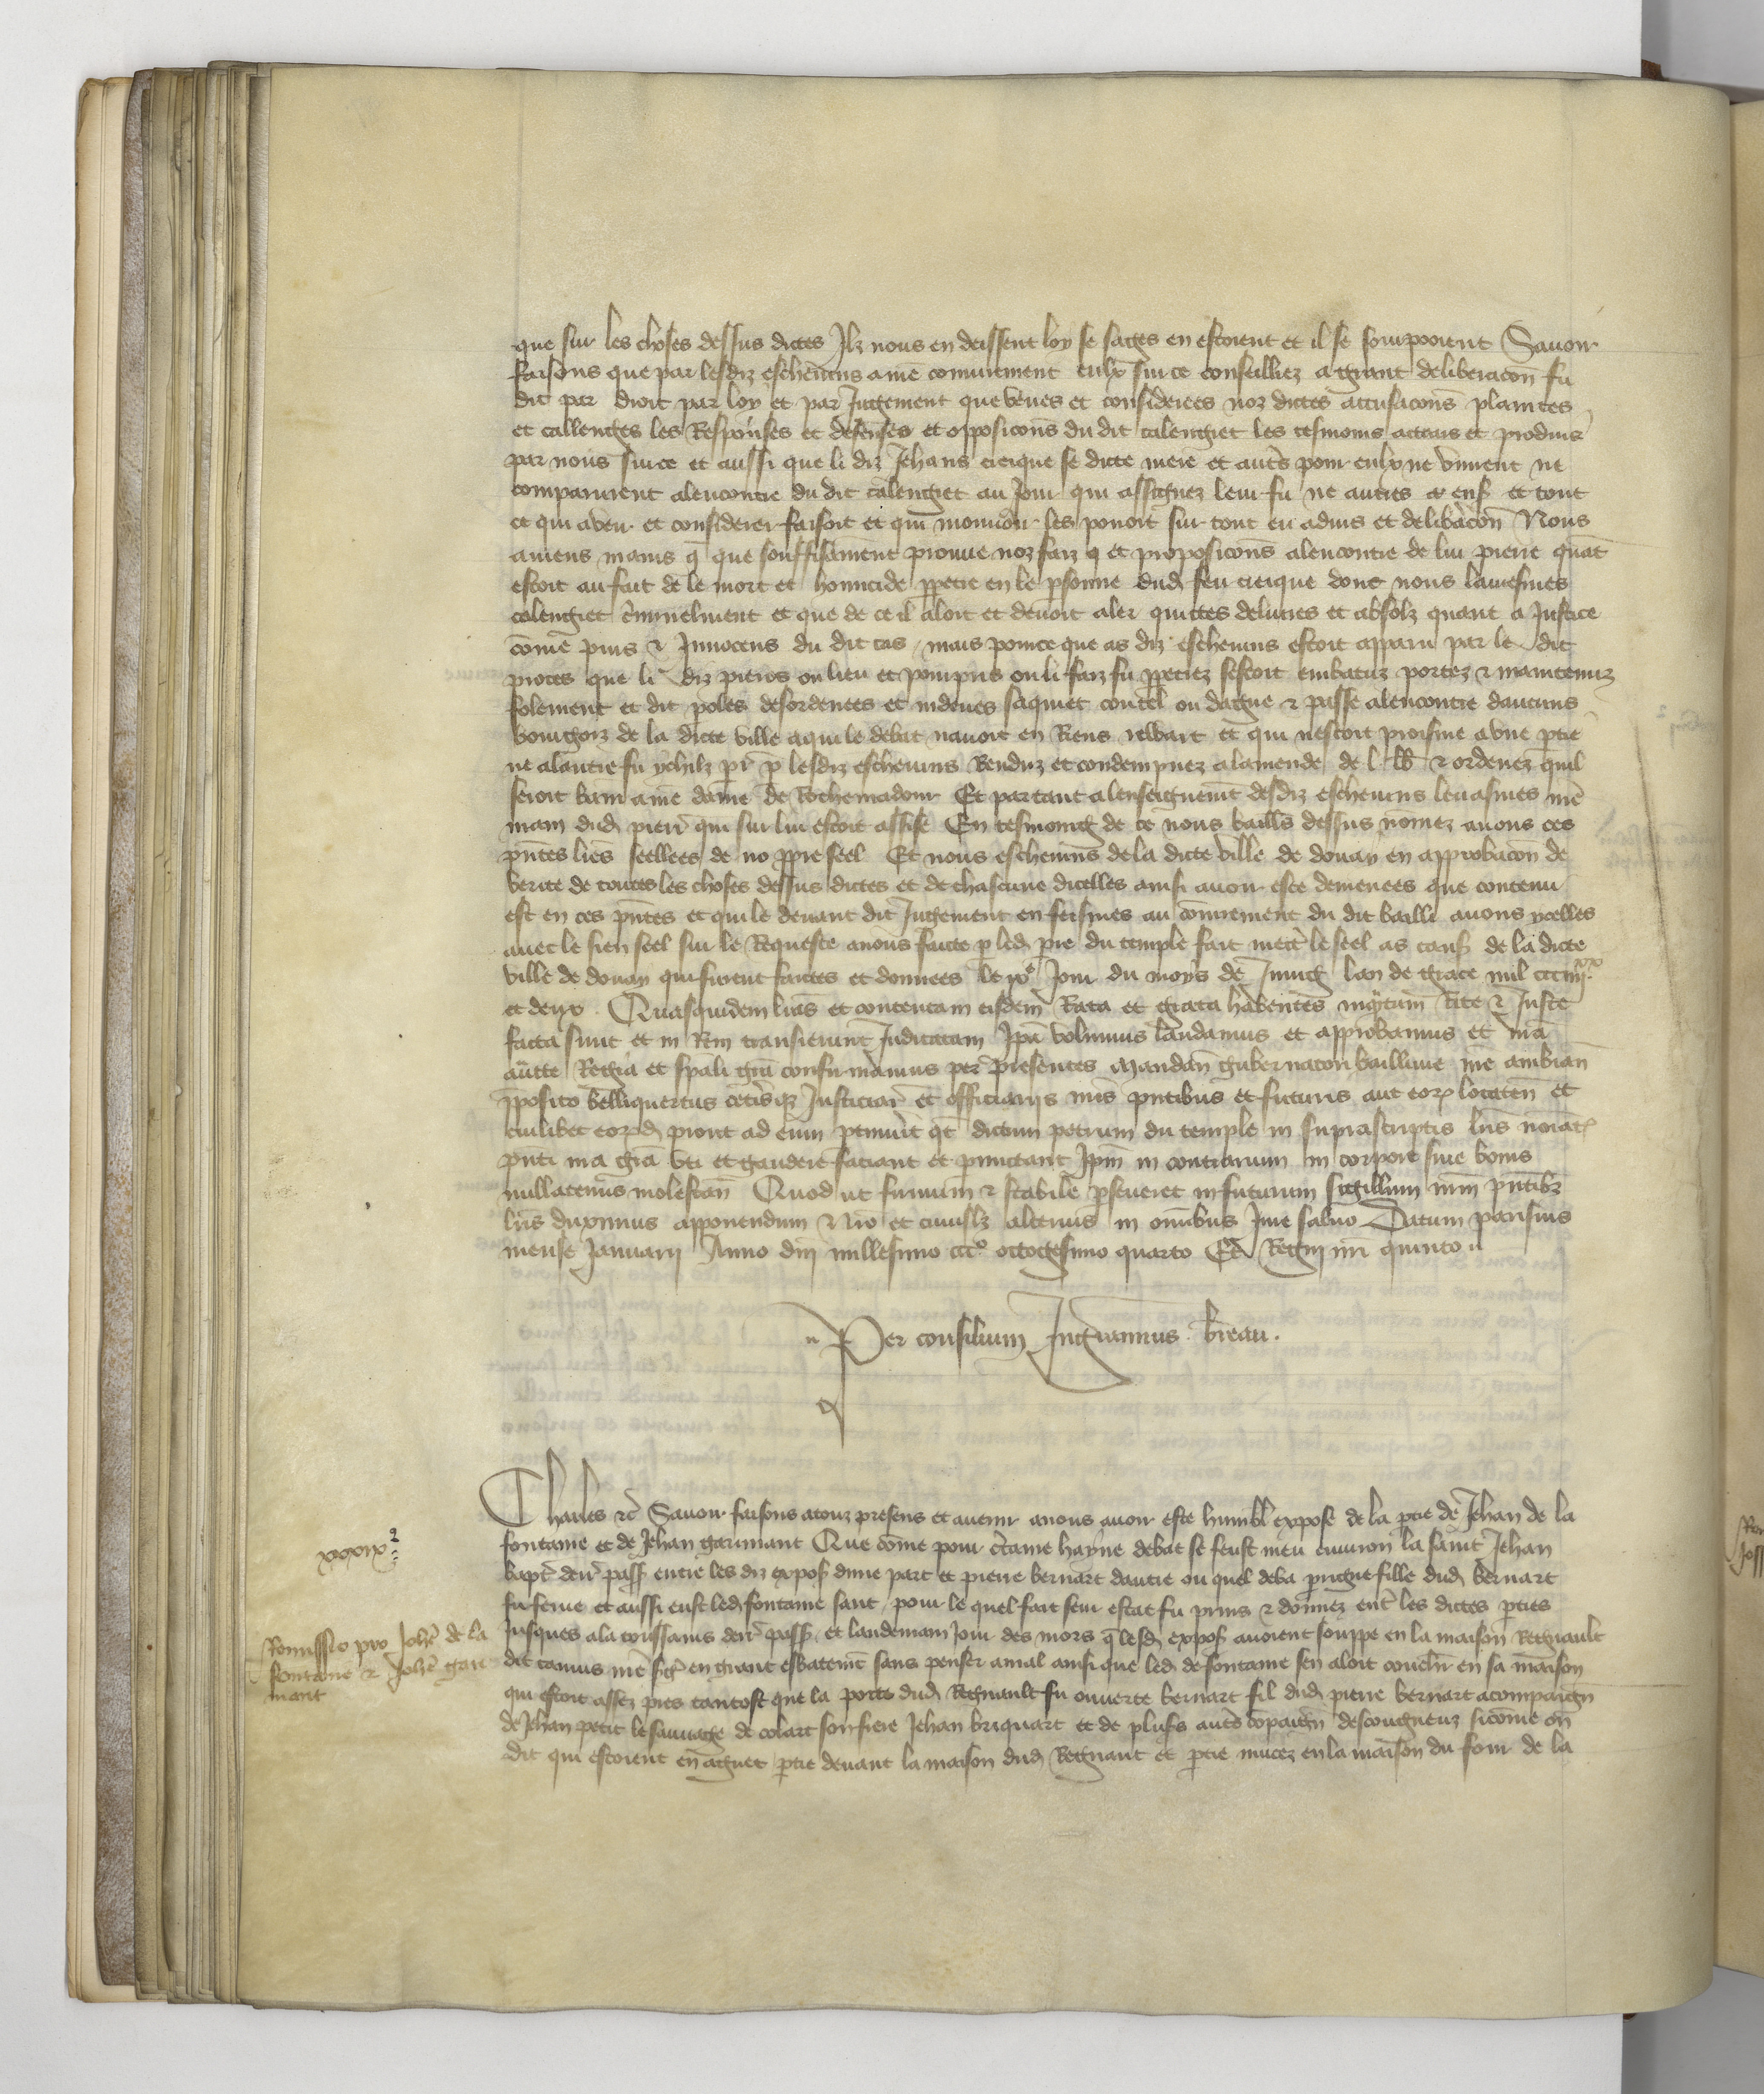 que sur les choses dessus dictes Ilz nous en deissent loy se sages en estoient et il se sompooient Savoir
faisons que par lesdiz eschevins a nre conjurement eulx sur ce conseilliez a grant deliberacon fu
dit par droit par loy et par Jugement que veues et considerees noz dictes accusacons plaintes
et callenges les Responses et defenses et opposicons du dit calengiet les tesmoins attrais et produis
par nous sur ce et aussi que li diz Jehans se dicte mere et autrs pour eulx ne vinrent ne
comparurent alencontre du dit calengiet au Jour qui assignez leur fu ne autres et tout
ce qui a veir et considerer faisoit et qui mouvoir les povoit sur tout eu advis et delibacon Nous
aviens mains que souffisament prouve noz faiz et proposicons alencontre de lui pierre quat
estoit au fait de le mort et homicide ppetre en le psonne dud feu dont nous laviesmes
calengiet criminelment et que de ce il aloit et devoit aler quittes delivres et absolz quant a Justice
come purs & Innocens du dit cas / mais pour ce que as diz eschevins estoit apparu par le dit
proces que li diz pieres ou lieu et pourpris ou li faiz fu ppetrez sestoit embatuz portez & maintenuz
folement et dit poles desordenees et indeues saquiet coutel ou dague & passe alencontre daucuns
bourgois de la dicte ville a qui le debat navoit en Riens rewart et qui nestoit proisme a une ptie
ne alautre fu ychilz pr p lesdiz eschevins Renduz et condempnez alamende de l lb & ordenez quil
feroit a nre dame de Rochemadour Et partant alenseignemt desdiz eschevins levasmes nre
main dud pierre qui sur lui estoit assise En tesmoing de ce nous baillis dessus nomez avons ces
pntes lres seellees de no ppre seel Et nous eschevins de la dicte ville de douay en approbacon de
verite de toutes les choses dessus dictes et de chascune dicelles ainsi avoir este demenees que contenu
est en ces pntes et qui le devant dit Jugement en fesismes au conjurement du dit bailli avons ycelles
avec le sien seel sur le Requeste a nous faicte p led pre du temple fait mettre le seel as caus de la dicte
ville de douay qui furent faictes et donnees le xe Jour du moys de Juing lan de grace mil ccc iiijxx
et deux. Quasquidem lras et contentam eisdem Rata et grata habentes inqtum Rite & Juste
facta sunt et in Rem transierunt Judicatam Ipa volumus laudamus et approbamus et nra
auctte Regia et spali gra confirmamus per presentes Mandan gubernatori baillivie nre ambian
pposito belliquercus cetisqz Justiciar et officiariis nris pntibus et futuris aut eorum locaten et
cuilibet eorumd prout ad eum ptinuit qt dictum petrum du temple in suprascriptis lris noiat
pnti nra gra uti et gaudere faciant et pmittant Ipm in contrarium in corpore sive bonis
nullatenus molestan Quod ut firmum & stabile pseveret in futurum sigillum nrm pntibz
lris duximus apponendum & nro et cuiuslz alterius in omibus Jure salvo Datum parisius
mense Januarii Anno dni millesimo ccco octogesimo quarto Et Regni nri quinto
Per consilium Inguannus. breau.
Charles etc Savoir faisons a touz presens et avenir a nous avoir este humbl expose de la ptie de Jehan de la
fontaine et de Jehan garimant Que come pour ctaine hayne debat se feust meu environ la saint Jehan
bapte derr pass entre les diz expos dune part et pierre bernart dautre ou quel deba fille dud bernart
fu ferue et aussi eust led fontaine sanc pour le quel fait seur estat fu prins & donnez entr les dictes pties
Jusques ala toussains derr pass et landemain Jour des mors q lesd expos avoient souppe en la maison Regnault
dit camus nre en grant esbatemt sans penser a mal ainsi que led de fontaine sen aloit couchr en sa maison
qui estoit assez pres tantost que la porte dud Regnault fu ouverte bernart fil dud pierre bernart acompaign
de Jehan petit le sauvage de colart son frere Jehan briquart et de plusrs autrs copaign descongneuz sicome on
dit qui estoient en aguet ptie devant la maison dud Regnaut et ptie mucez en la maison du four de la
xxxix
Remissio pro Johe de la
fontaine & Johe gari
mant